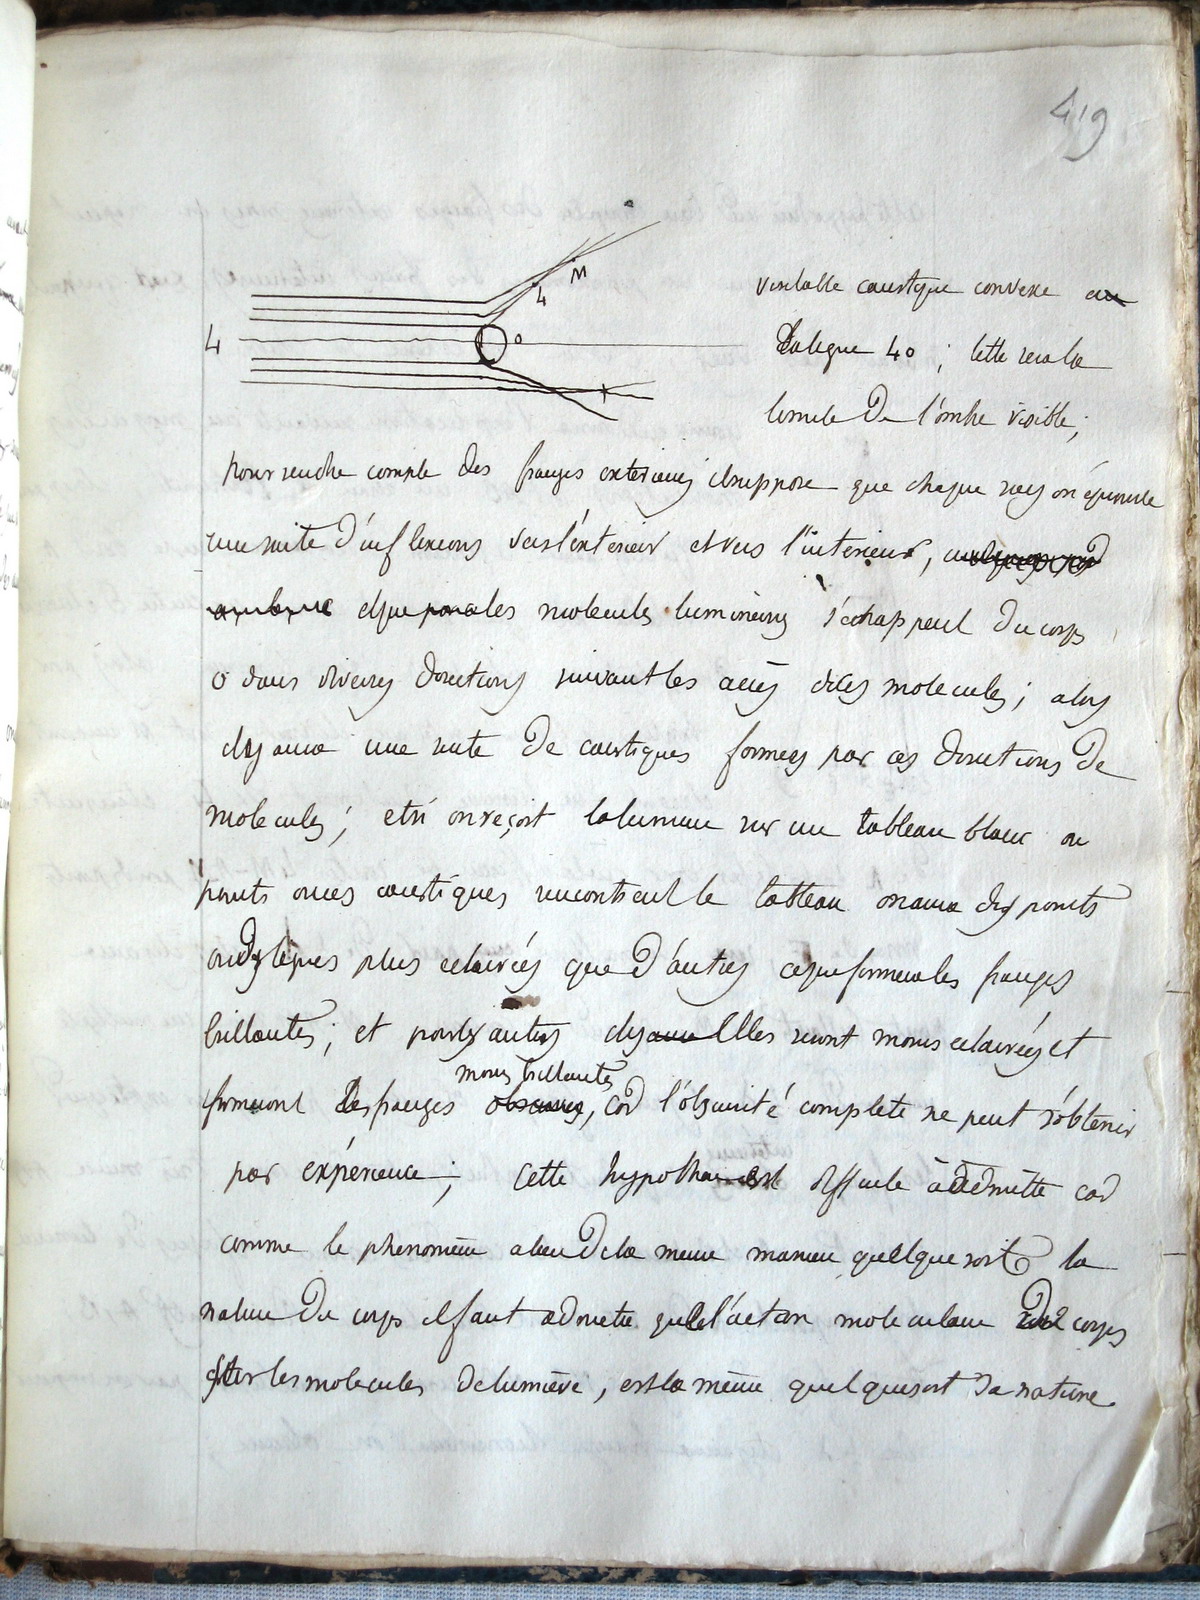 419
M
4
4
o
veritable caustique convexe au
la ligne 40 ; cette sera la
limite de l'ombre visible ;
pour rendre compte des franges exterieures il suppose que chaque rayon éprouve
une suite d'inflexions vers l'exterieur et vers l'interieur,
et que les molecules lumineuses s'échappent du corps
o dans diverses directions suivant les accès de ces molecules ; alors
il y aura une suite de caustiques formées par ces directions de
molecules ; et si on reçoit la lumiere sur un tableau blanc au
points ou ces caustiques rencontrent le tableau on aura des points
ou des lignes plus eclairées que d'autres ce que formera les franges
brillantes ; et pour les autres elles seront moins eclairées et
moins brillantes
formeront des franges obscures, car l'obscurité complete ne peut s'obtenir
par expérience ; cette hypothese est difficile à admettre car
comme le phenomène a lieu de la meme maniere quelque soit la
nature du corps il faut admettre que l'action moleculaire des corps
sur les molecules de lumière, est la même quelque soit la nature